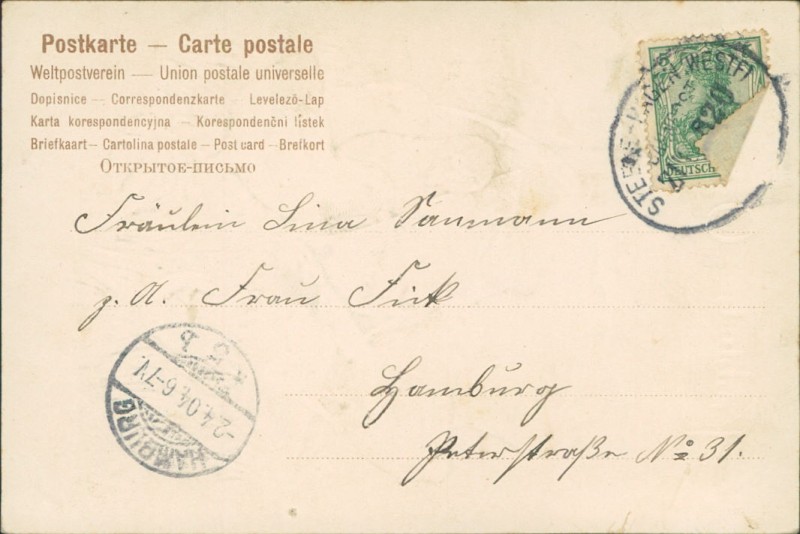 Postkarte — Carte postale
Weltpostverein — Union postale universelle
Dopisnice — Correspondenzkarte — Levelező-Lap
Karta korespondencyjna — Korespondenční lístek
Briefkaart — Cartolina postale — Post card — Brefkort
Открытое-письмо
DEUTSCH
Fräulein Lina Saumann
z. A. Frau Fick
Hamburg
Peterstraße No 31.
HAMBURG
-2.4.04.6-7V.